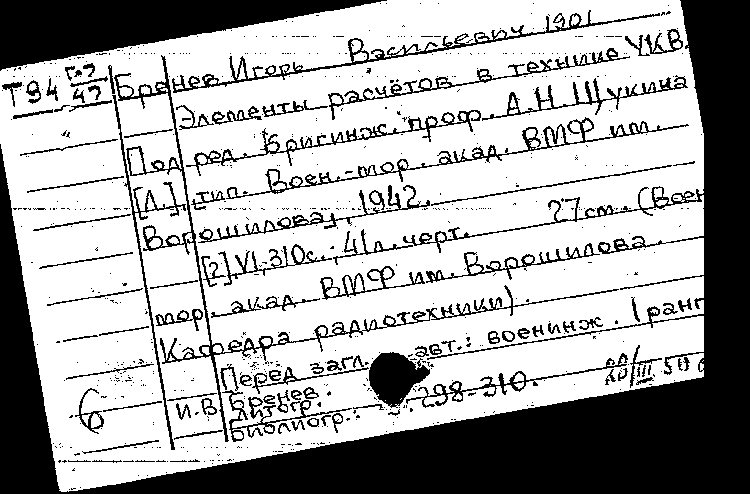 Т94 47 Бренев, Игорь Васильевич 1901
Элементы расчётов в технике УКВ.
Под ред. бригинж. проф. А.Н. Щукина
[Л.], тип. Воен.-мор. акад. ВМФ им.
Ворошилова, 1942.
[2], VI, 310 с.; 41 л. черт. 27 см. (Воен
мор. акад. ВМФ им. Ворошилова.
Кафедра радиотехники).
Перед загл. авт.: военинж. I ранг
И.В. Бренев.
Литогр.
Библиогр.: 298-310.
20/III 50
6